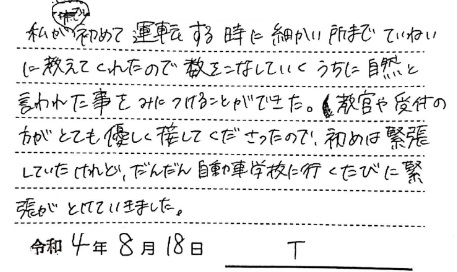 私が初めて運転する時に細かい所までていねい
に教えてくれたので数をこなしていくうちに自然と
言われた事をみにつけることができた。教官や受付の
方がとても優しく接してくださったので、初めは緊張
していたけれど、だんだん自動車学校に行くたびに緊
張がとけていきました。
令和 4 年 8 月 18 日 T